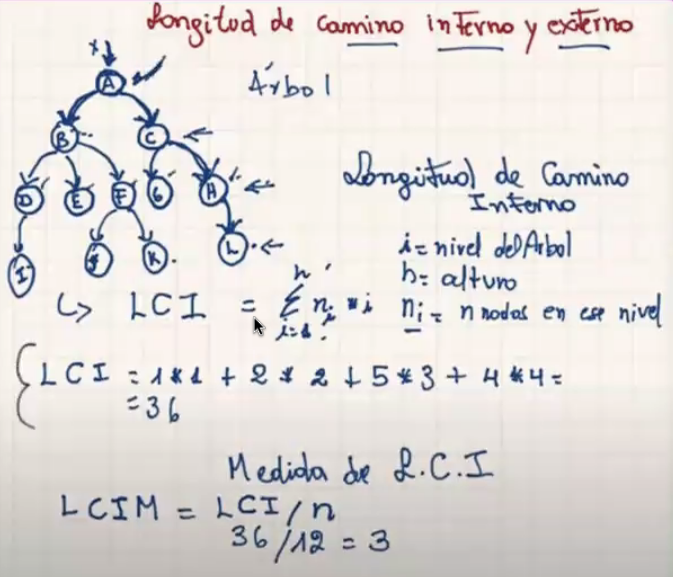 Longitud de Camino interno y externo
x
A
Árbol
B C
D E F G H
I J K L
Longitud de Camino
Interno
i = nivel del Arbol
h = altura
ni = n nodos en ese nivel
h
↳ LCI = Σ ni * i
i=1
LCI = 1*1 + 2*2 + 5*3 + 4*4 =
= 36
Medida de L.C.I
LCIM = LCI/n
36/12 = 3